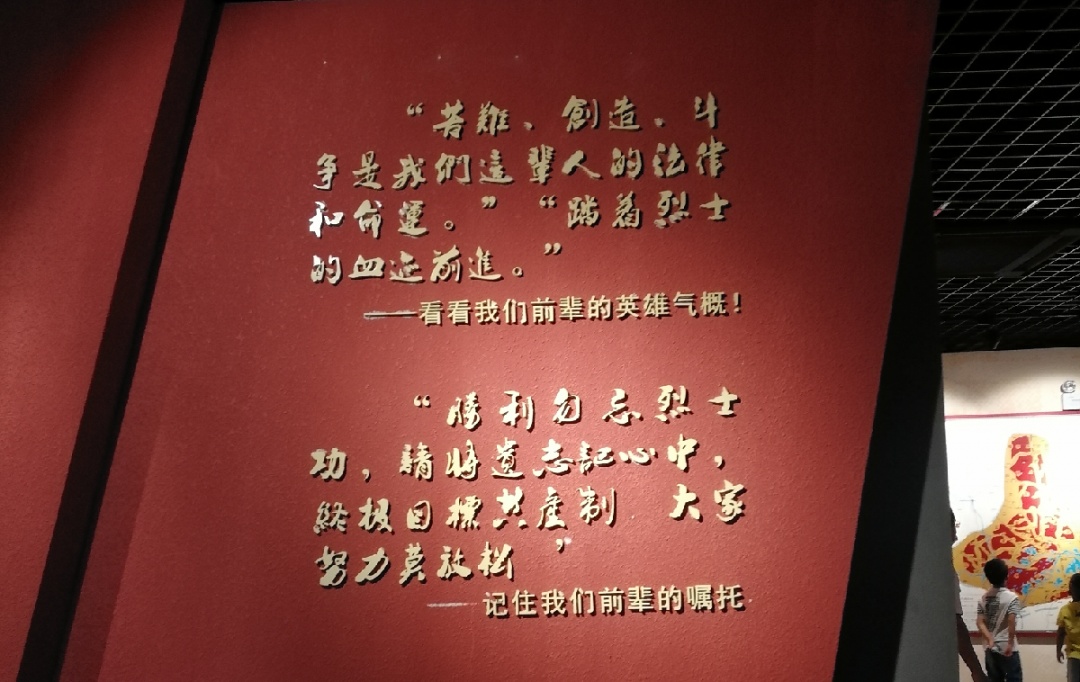 “苦難、創造、斗
争是我們這輩人的法律
和命運。”“踏着烈士
的血迹前進。”
——看看我们前辈的英雄气概！
“勝利勿忘烈士
功，請將遺志記心中，
終极目標共産制 大家
努力莫放松”
——记住我们前辈的嘱托.